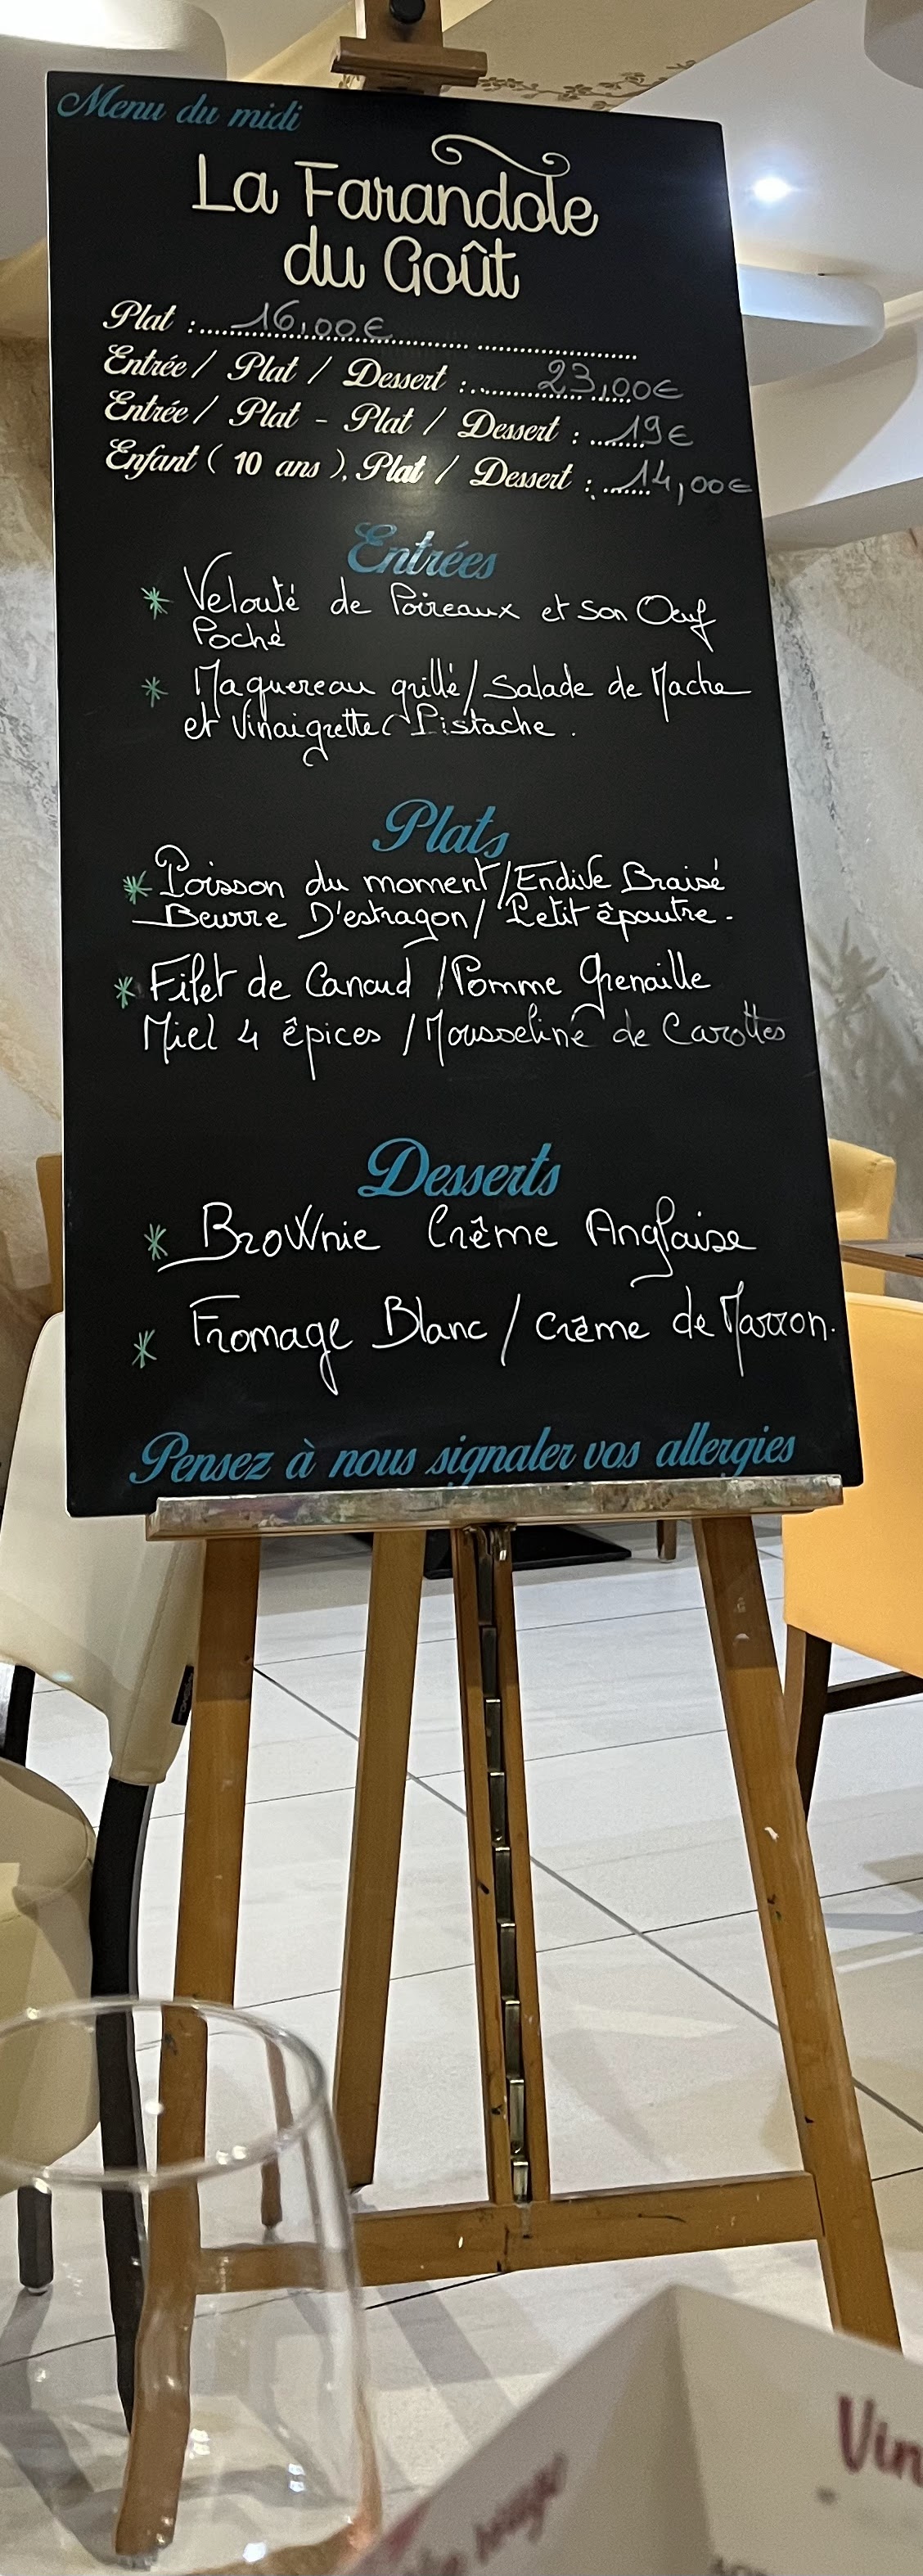 Menu du midi
La Farandole
du Goût
Plat :......16,00€......................
Entrée / Plat / Dessert :......23,00€
Entrée / Plat - Plat / Dessert : ......19€
Enfant ( 10 ans ), Plat / Dessert : ......14,00€
Entrées
* Velouté de Poireaux et son Oeuf
Poché
* Maquereau grillé / Salade de Mache
et Vinaigrette Pistache .
Plats
* Poisson du moment / Endive Braisé
Beurre D'estragon / Petit épautre .
* Filet de Canard / Pomme Grenaille
Miel 4 épices / Mousseline de Carottes
Desserts
* Brownie Crême Anglaise
* Fromage Blanc / Crème de Marron.
Pensez à nous signaler vos allergies
rouge
Vin